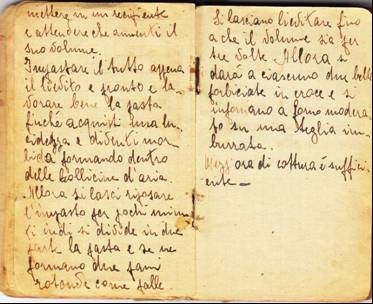 mettere in un recipiente
e attendere che aumenti il
suo volume.
Impastare il tutto appena
il lievito è pronto e la-
vorare bene la pasta
finché acquisti una lu-
cidezza e diventi mor
bida formando dentro
delle bollicine d'aria.
Allora si lasci riposare
l'impasto per pochi minu
ti indi si divide in due
parti la pasta e se ne
formano due pani
rotondi come palle.
Si lasciano lievitare fino
a che il volume sia per
tre volte. Allora si
darà a ciascuno due belle
forbiciate in croce e si
infornano a forno modera-
to su una teglia im-
burrata.
Mezz'ora di cottura è suffici-
ente —